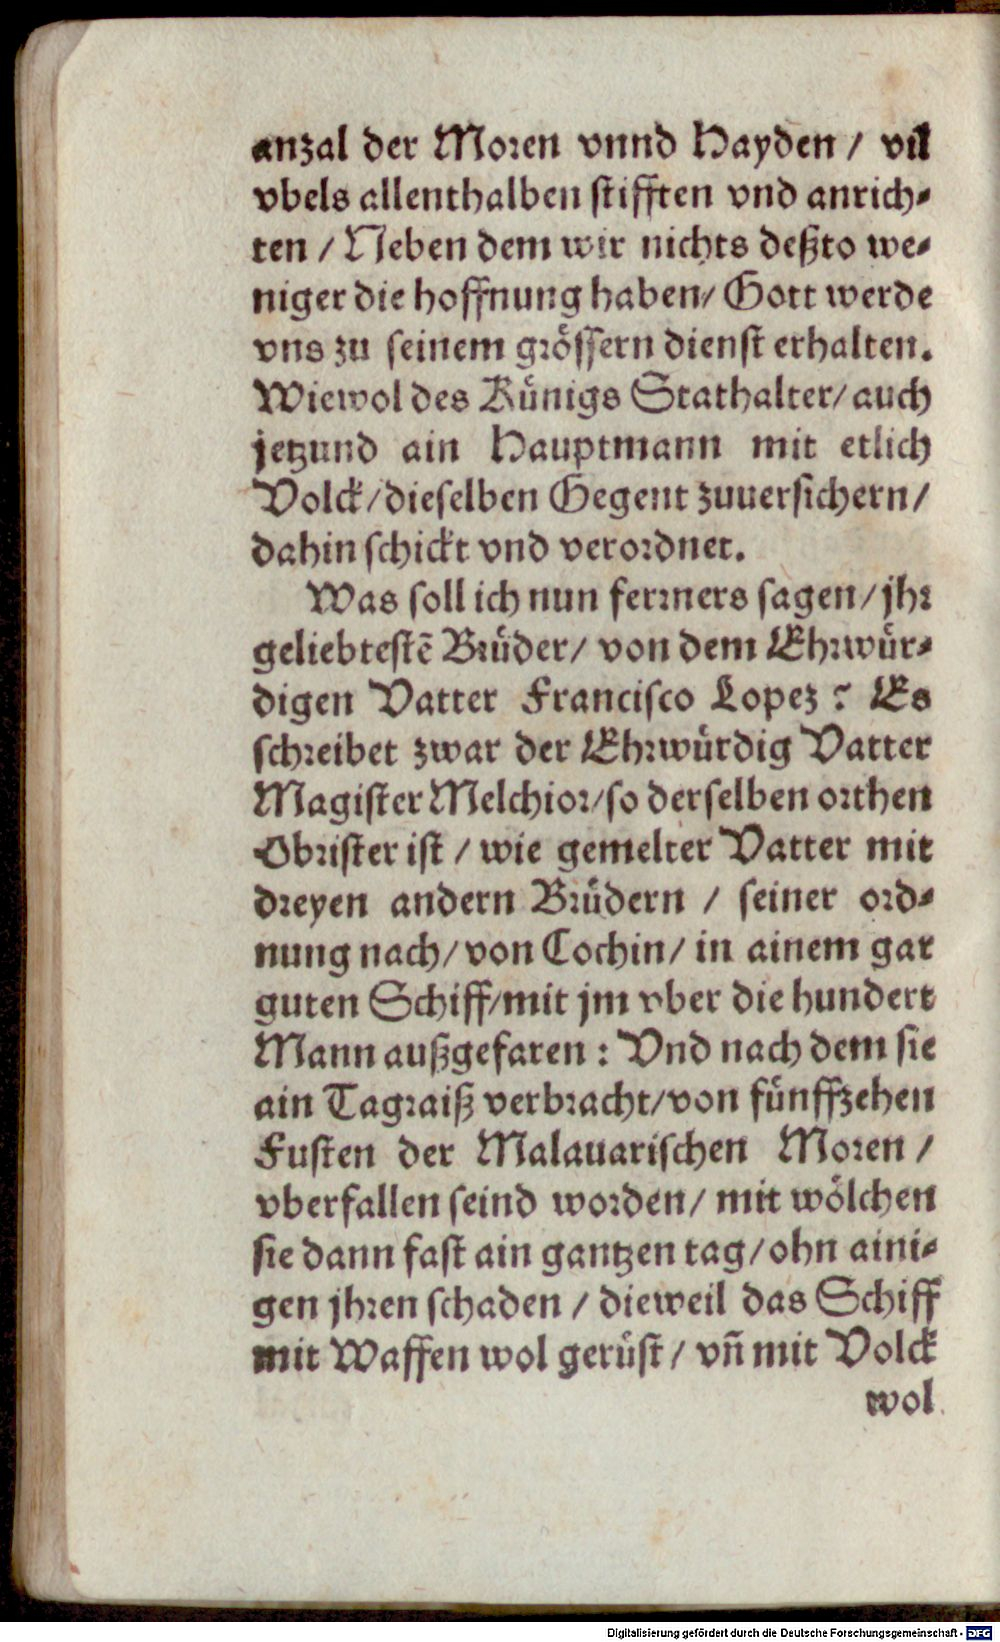 anzal der Moren vnnd Hayden / vil
vbels allenthalben stifften vnd anrich-
ten / Neben dem wir nichts deßto we-
niger die hoffnung haben / Gott werde
vns zu seinem grössern dienst erhalten.
Wiewol des Künigs Stathalter / auch
jetzund ain Hauptmann mit etlich
Volck / dieselben Gegent zuuersichern /
dahin schickt vnd verordnet.
Was soll ich nun ferrners sagen / jhr
geliebtestē Brüder / von dem Ehrwür-
digen Vatter Francisco Lopez? Es
schreibet zwar der Ehrwürdig Vatter
Magister Melchior / so derselben orthen
Obrister ist / wie gemelter Vatter mit
dreyen andern Brüdern / seiner ord-
nung nach / von Cochin / in ainem gar
guten Schiff / mit jm vber die hundert
Mann außgefaren : Vnd nach dem sie
ain Tagraiß verbracht / von fünffzehen
Fusten der Malauarischen Moren /
vberfallen seind worden / mit wölchen
sie dann fast ain gantzen tag / ohn aini-
gen jhren schaden / dieweil das Schiff
mit Waffen wol gerüst / vñ mit Volck
wol
Digitalisierung gefördert durch die Deutsche Forschungsgemeinschaft - DFG